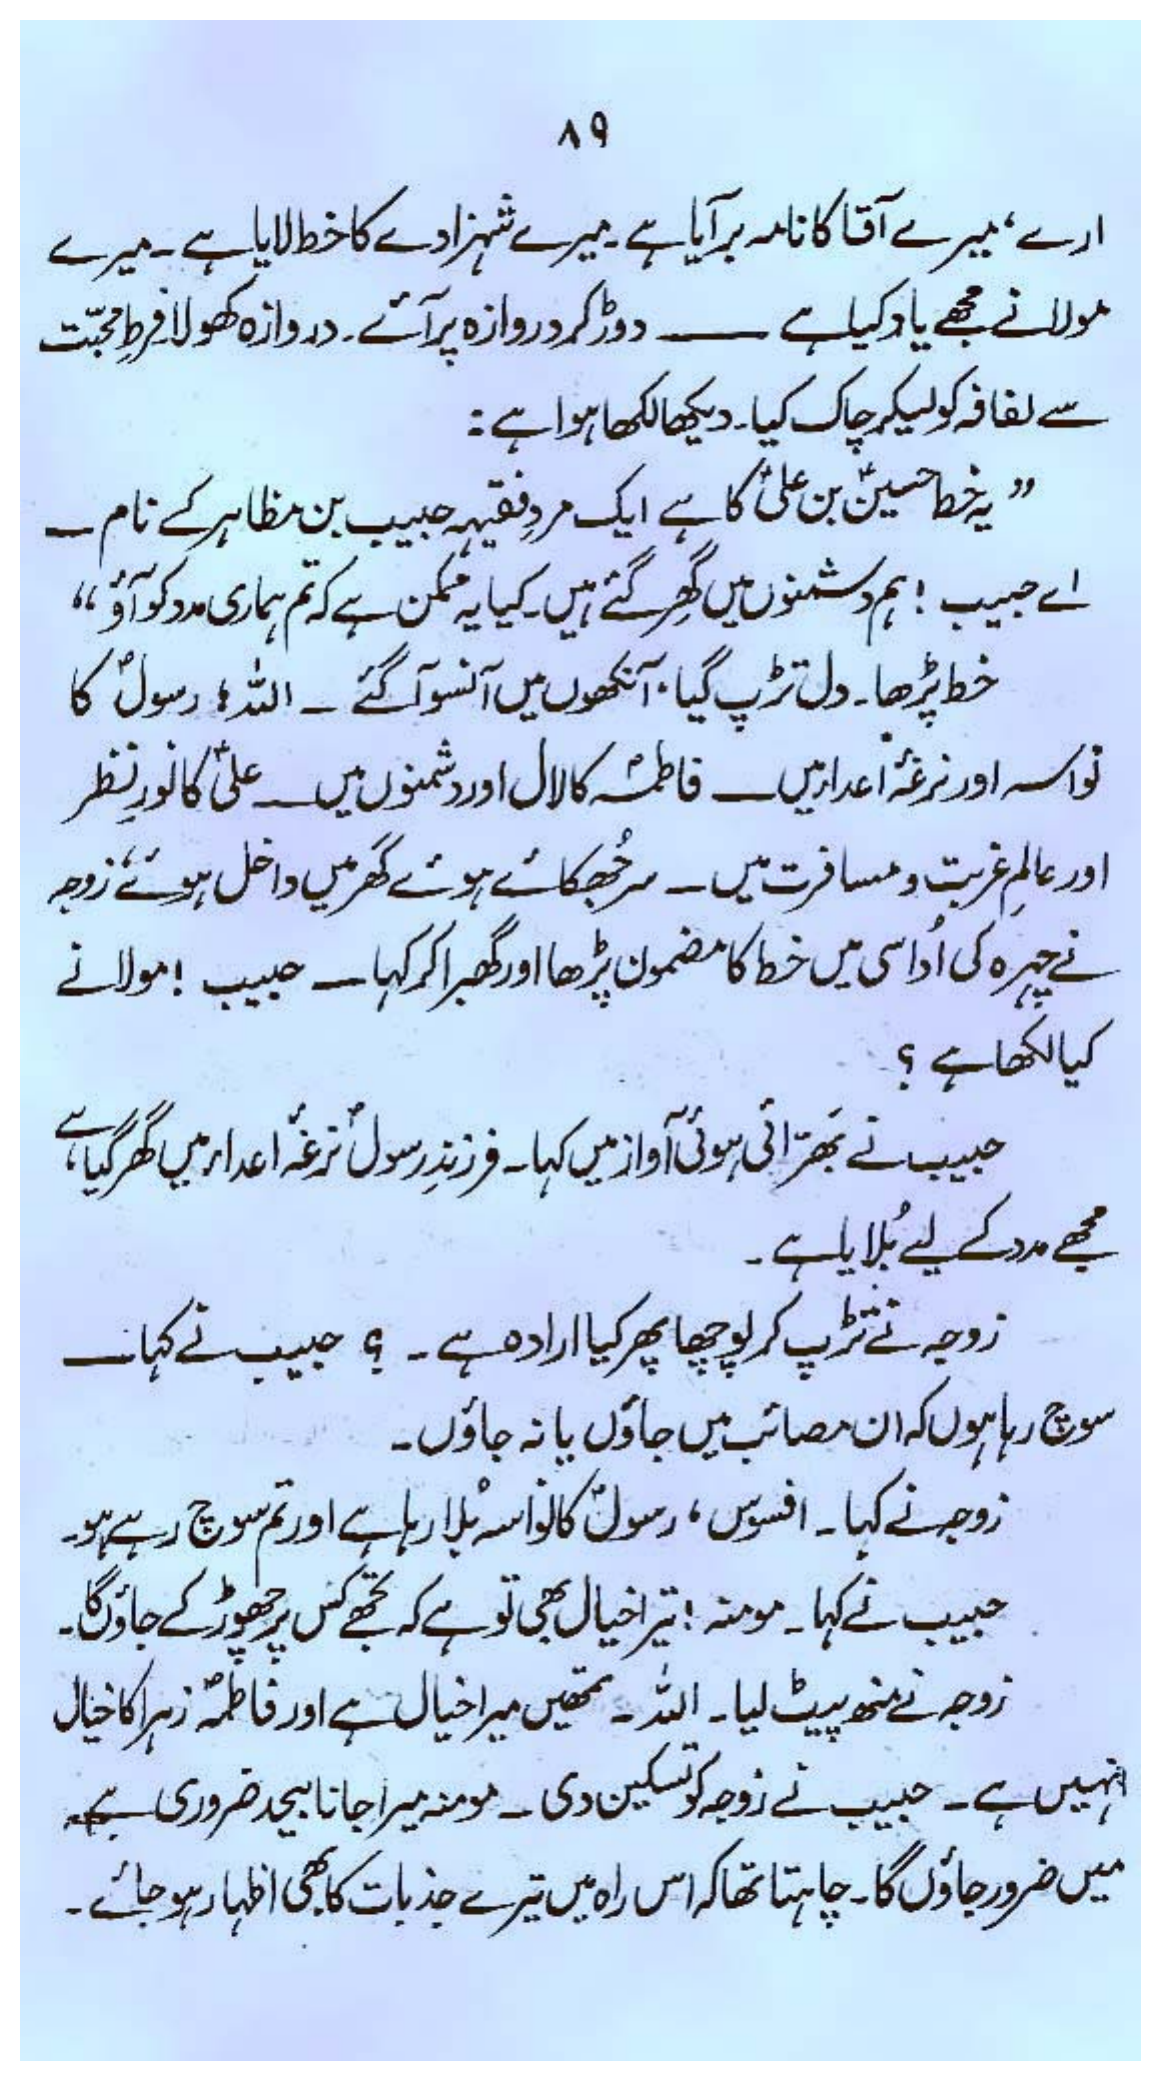 ۸۹
ارے، میرے آقا کا نامہ بر آیا ہے۔ میرے شہزادے کا خط لایا ہے۔ میرے
مولا نے مجھے یاد کیا ہے ـــــ دوڑ کر دروازہ پر آئے۔ دروازہ کھولا فرطِ محبّت
سے لفافہ کو لیکر چاک کیا۔ دیکھا لکھا ہوا ہے :
” یہ خط حسینؑ بن علیؑ کا ہے ایک مردِ فقیہہ حبیب بن مظاہر کے نام ـــ
اے حبیب ! ہم دشمنوں میں گھِر گئے ہیں۔ کیا یہ ممکن ہے کہ تم ہماری مدد کو آؤ “
خط پڑھا۔ دل تڑپ گیا، آنکھوں میں آنسو آ گئے ـــ اللہ ! رسولؐ کا
نواسہ اور نرغۂ اعداء میں ـــ فاطمہؑ کا لال اور دشمنوں میں ـــ علیؑ کا نورِ نظر
اور عالمِ غربت و مسافرت میں ـــ سر جُھکائے ہوئے گھر میں داخل ہوئے، زوجہ
نے چہرہ کی اُداسی میں خط کا مضمون پڑھا اور گھبرا کر کہا ـــ حبیب ! مولا نے
کیا لکھا ہے ؟
حبیب نے بَھرّائی ہوئی آواز میں کہا۔ فرزندِ رسولؐ نرغۂ اعداء میں گھر گیا ہے،
مجھے مدد کے لیے بُلایا ہے۔
زوجہ نے تڑپ کر پوچھا پھر کیا ارادہ ہے ۔ ؟ حبیب نے کہا ـــ
سوچ رہا ہوں کہ ان مصائب میں جاؤں یا نہ جاؤں۔
زوجہ نے کہا۔ افسوس، رسولؐ کا نواسہ بُلا رہا ہے اور تم سوچ رہے ہو۔
حبیب نے کہا۔ مومنہ ! تیرا خیال بھی تو ہے کہ تجھے کس پر چھوڑ کے جاؤں گا۔
زوجہ نے منھ پیٹ لیا۔ اللہ ۔ تمھیں میرا خیال ہے اور فاطمہؑ زہرا کا خیال
نہیں ہے۔ حبیب نے زوجہ کو تسکین دی ۔ مومنہ میرا جانا بیحد ضروری ہے۔
میں ضرور جاؤں گا۔ چاہتا تھا کہ اس راہ میں تیرے جذبات کا بھی اظہار ہو جائے۔